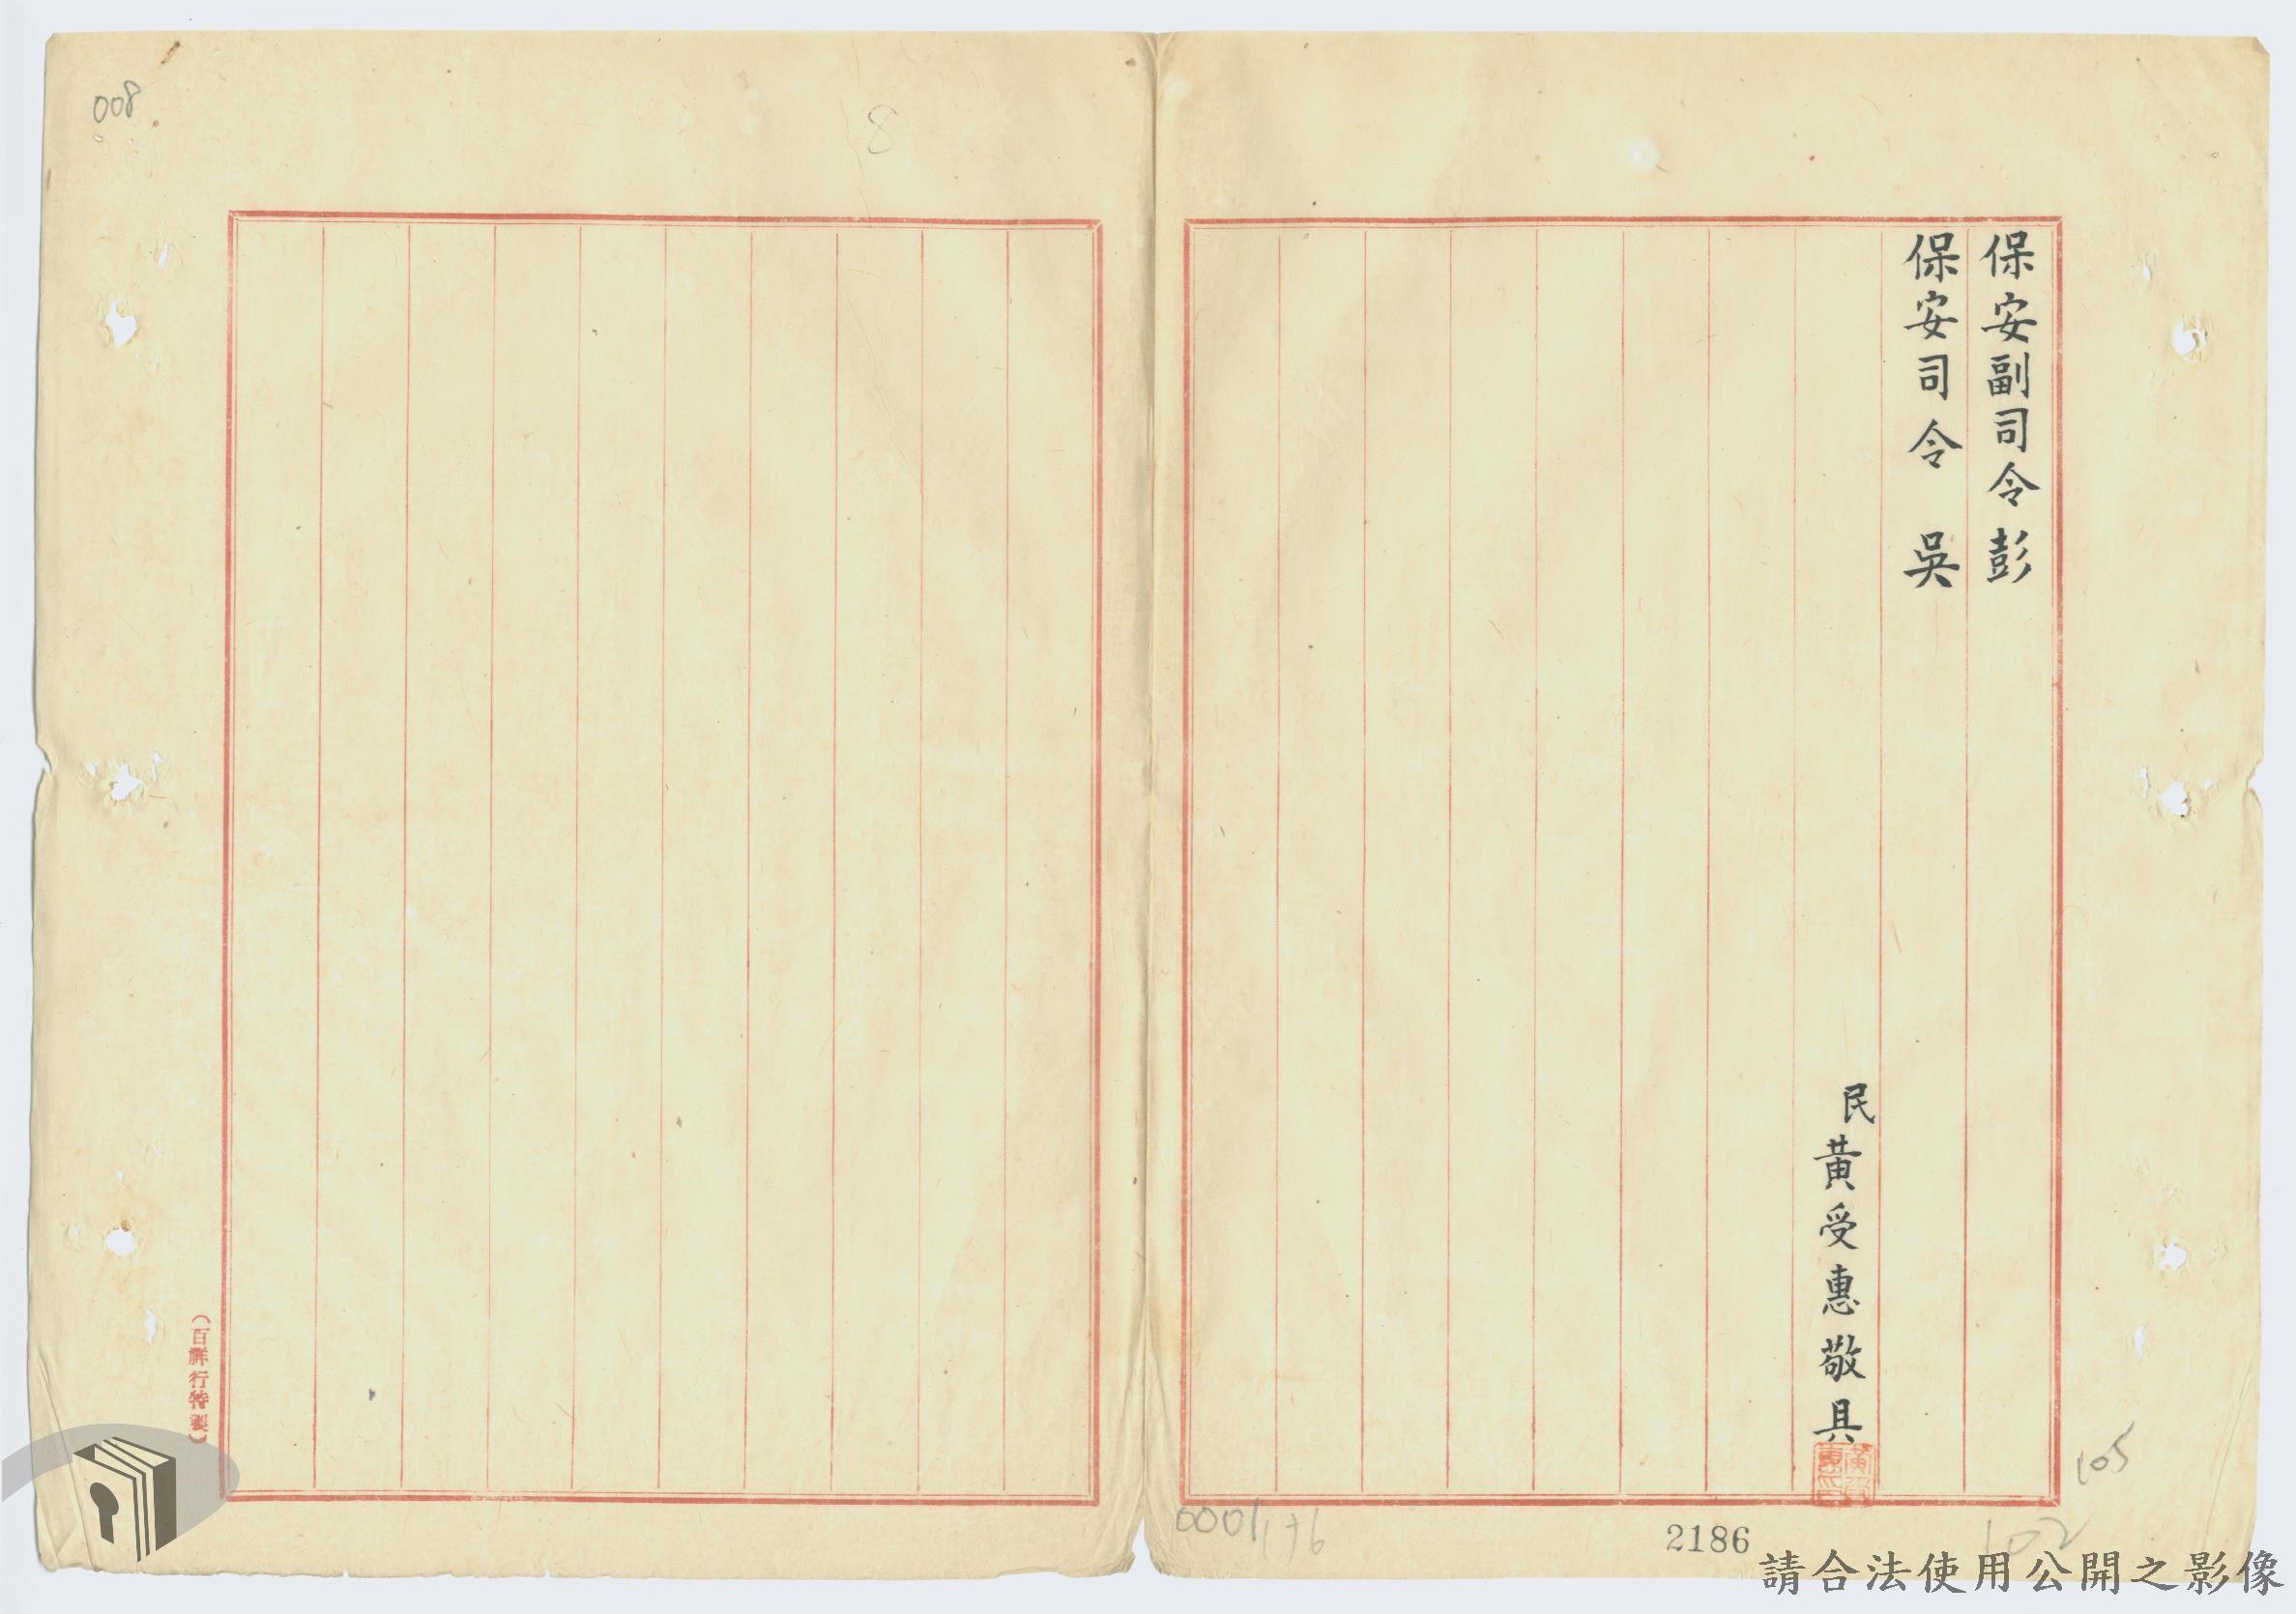 保安副司令彭
保安司令 吳
民黃受惠敬具
008
8
(百祥行特製)
105
102
2186
請合法使用公開之影像